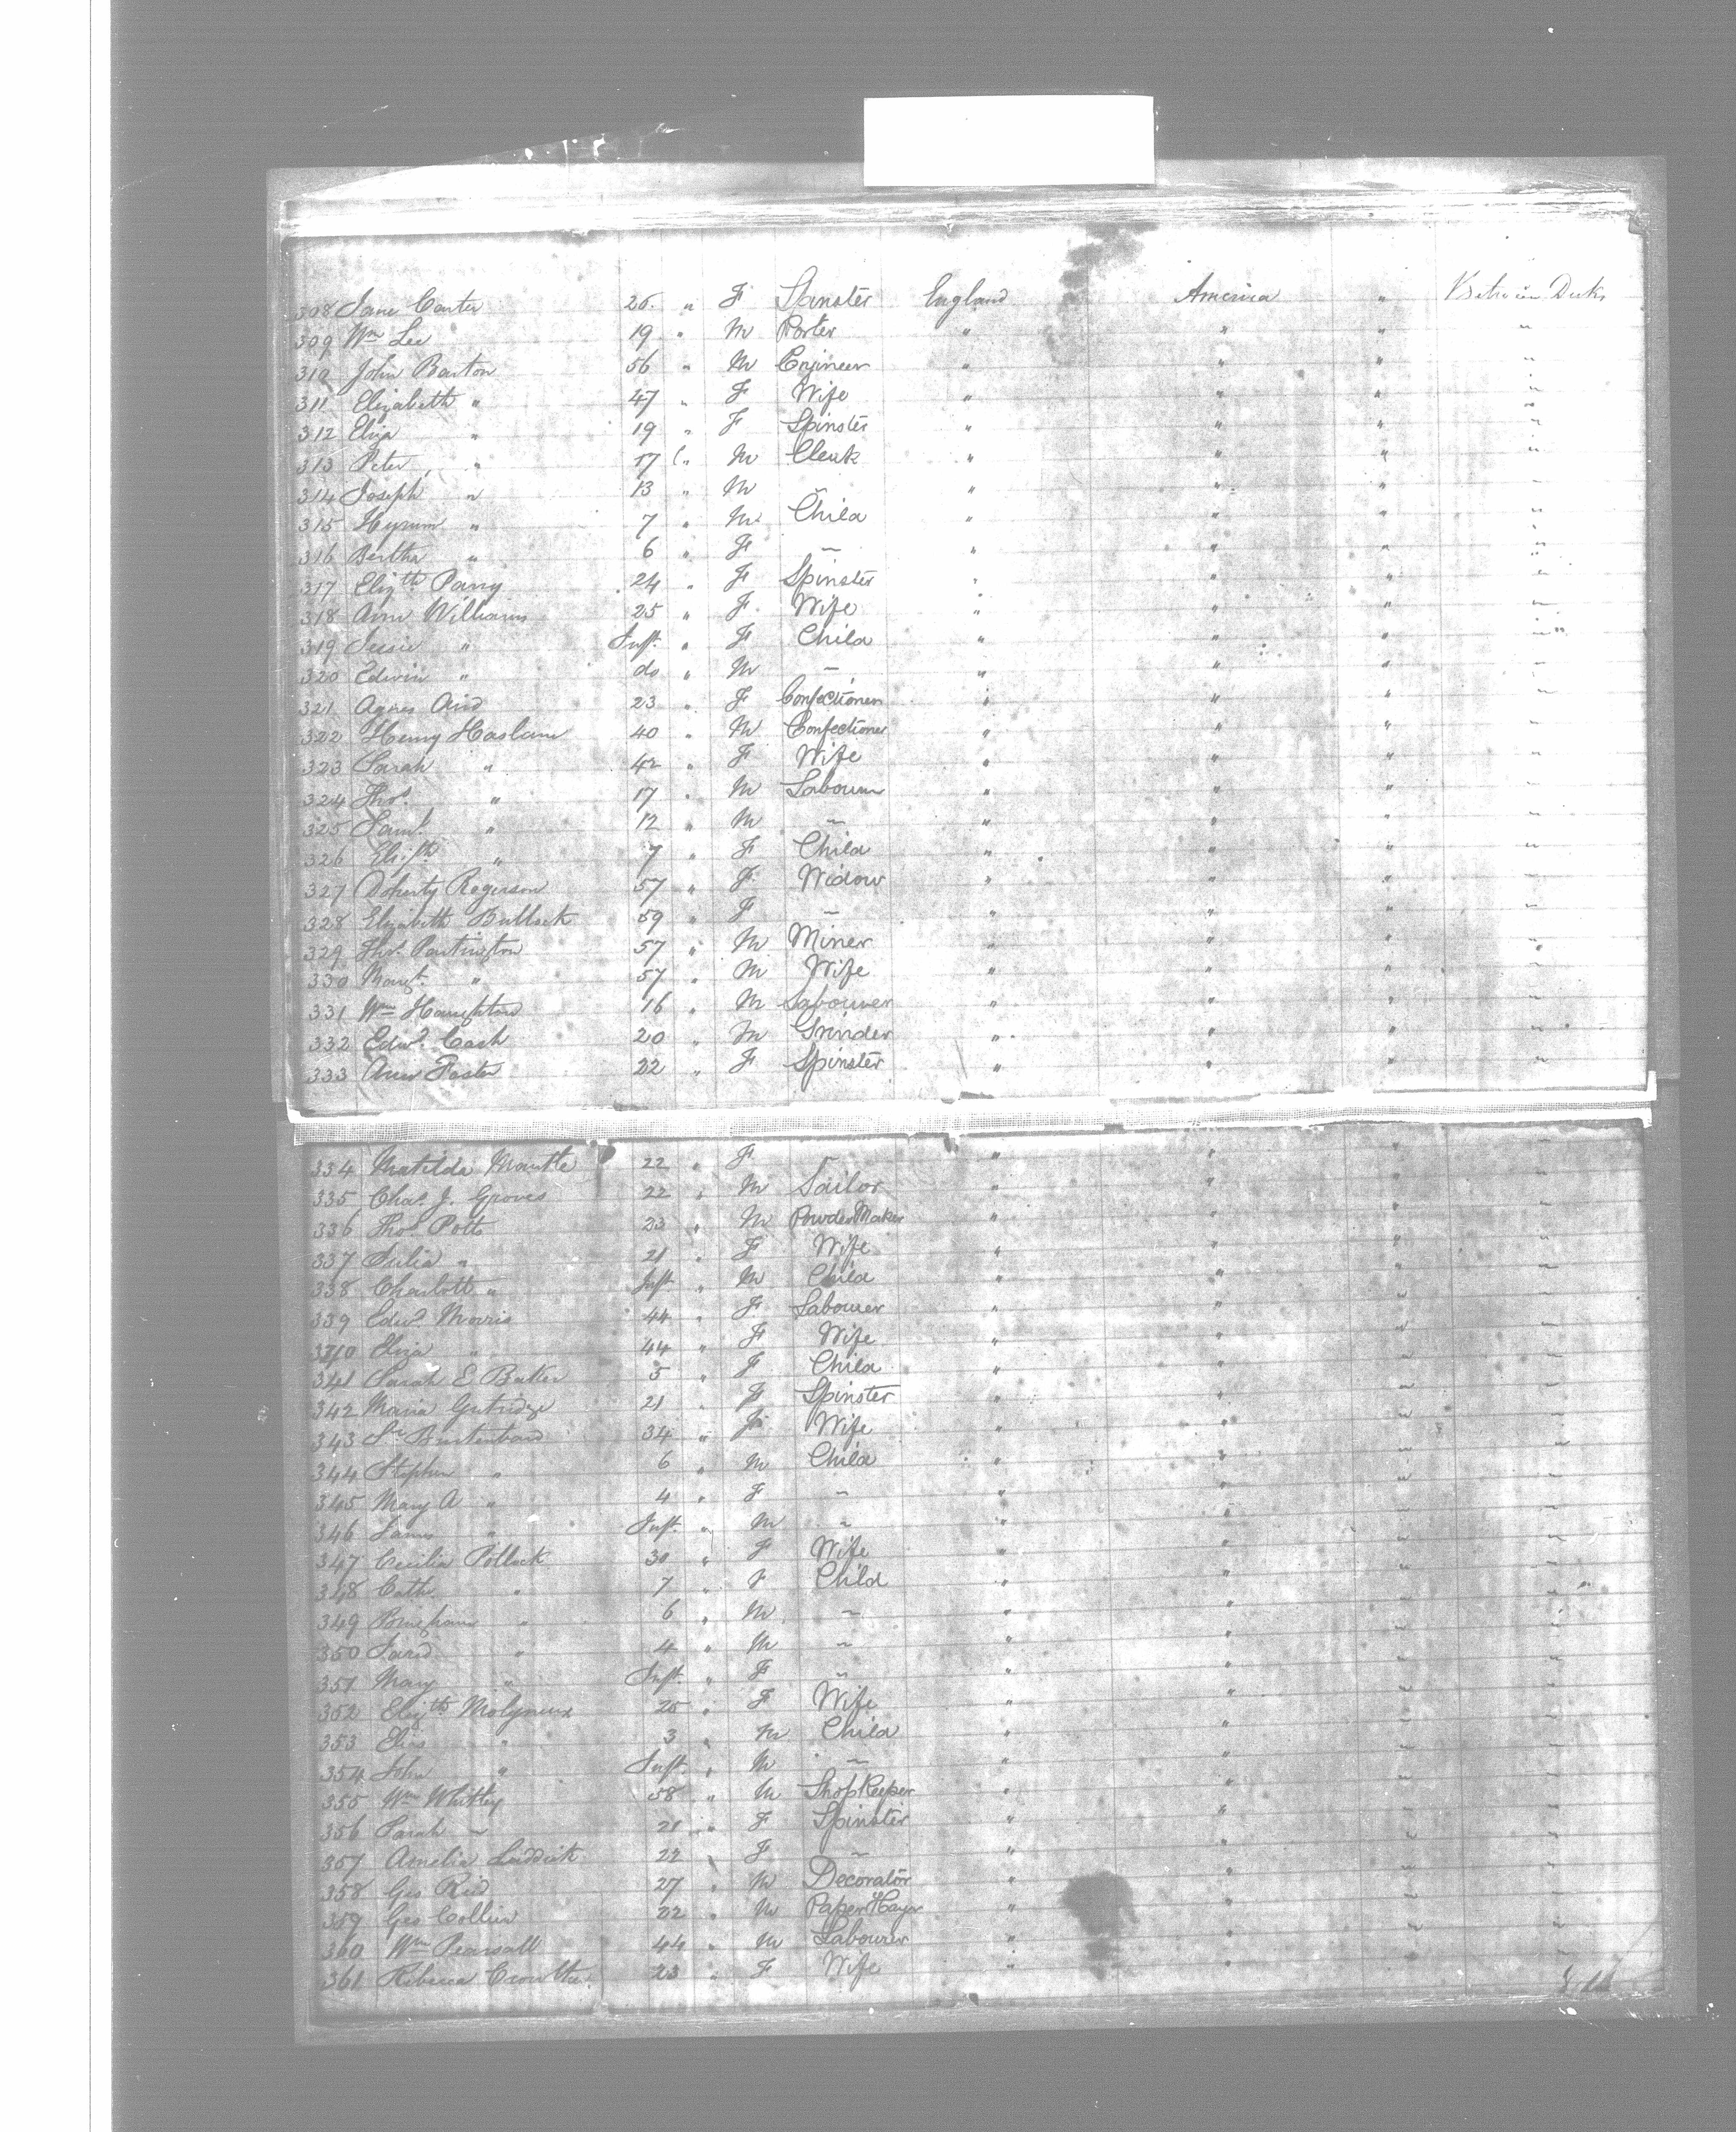 308 Jane Carter 26 " F Spinster England America " Between Decks
309 Wm Lee 19 " M Porter " " " "
310 John Barton 56 " M Engineer " " " "
311 Elizabeth " 47 " F Wife " " " "
312 Eliza " 19 " F Spinster " " " "
313 Peter " 17 " M Clerk " " " "
314 Joseph " 13 " M " " " " "
315 Hyrum " 7 " M Child " " " "
316 Bertha " 6 " F " " " " "
317 Elizth Parry 24 " F Spinster " " " "
318 Ann Williams 25 " F Wife " " " "
319 Jessie " Inft. " F Child " " " "
320 Edwin " do " M " " " " "
321 Agnes 23 " F Confectioner " " " "
322 Henry Haslam 40 " M Confectioner " " " "
323 Sarah " 42 " F Wife " " " "
324 Thos. " 17 " M Labourer " " " "
325 Saml. " 12 " M " " " " "
326 " 7 " F Child " " " "
327 Doherty Rogerson 57 " F Widow " " " "
328 Elizabeth Bullock 59 " F " " " " "
329 Thos. Partington 57 " M Miner " " " "
330 Margt. " 57 " M Wife " " " "
331 Wm Haughton 16 " M Labourer " " " "
332 Edwd. Cash 20 " M Grinder " " " "
333 Foster 22 " F Spinster " " " "
334 Matilda Mantle 22 " F " " " " "
335 Chas. J. Groves 22 " M Sailor " " " "
336 Thos. Potts 23 " M Powder Maker " " " "
337 Julia " 21 " F Wife " " " "
338 Charlott " Inft " M Child " " " "
339 Edwd. Morris 44 " F Labourer " " " "
340 Eliza " 44 " F Wife " " " "
341 Sarah E 5 " F Child " " " "
342 Maria Gutridge 21 " F Spinster " " " "
343 34 " F Wife " " " "
344 Stephen " 6 " M Child " " " "
345 Mary A " 4 " F " " " " "
346 " Inft. " M " " " " "
347 Cecilia Pollock 30 " F Wife " " " "
348 Cath. " 7 " F Child " " " "
349 " 6 " M " " " " "
350 " 4 " M " " " " "
351 Mary " Inft. " F " " " " "
352 Elizth Molyneux 25 " F Wife " " " "
353 Elias " 3 " M Child " " " "
354 John " Inft. " M " " " " "
355 Wm Whitley 58 " M ShopKeeper " " " "
356 Sarah " 21 " F Spinster " " " "
357 Amelia 22 " F " " " " "
358 Geo Reid 27 " M Decorator " " " "
359 Geo Collier 22 " M Paper " " " "
360 Wm Pearsall 44 " M Labourer " " " "
361 Rebecca Crowther 23 " F Wife " " " "